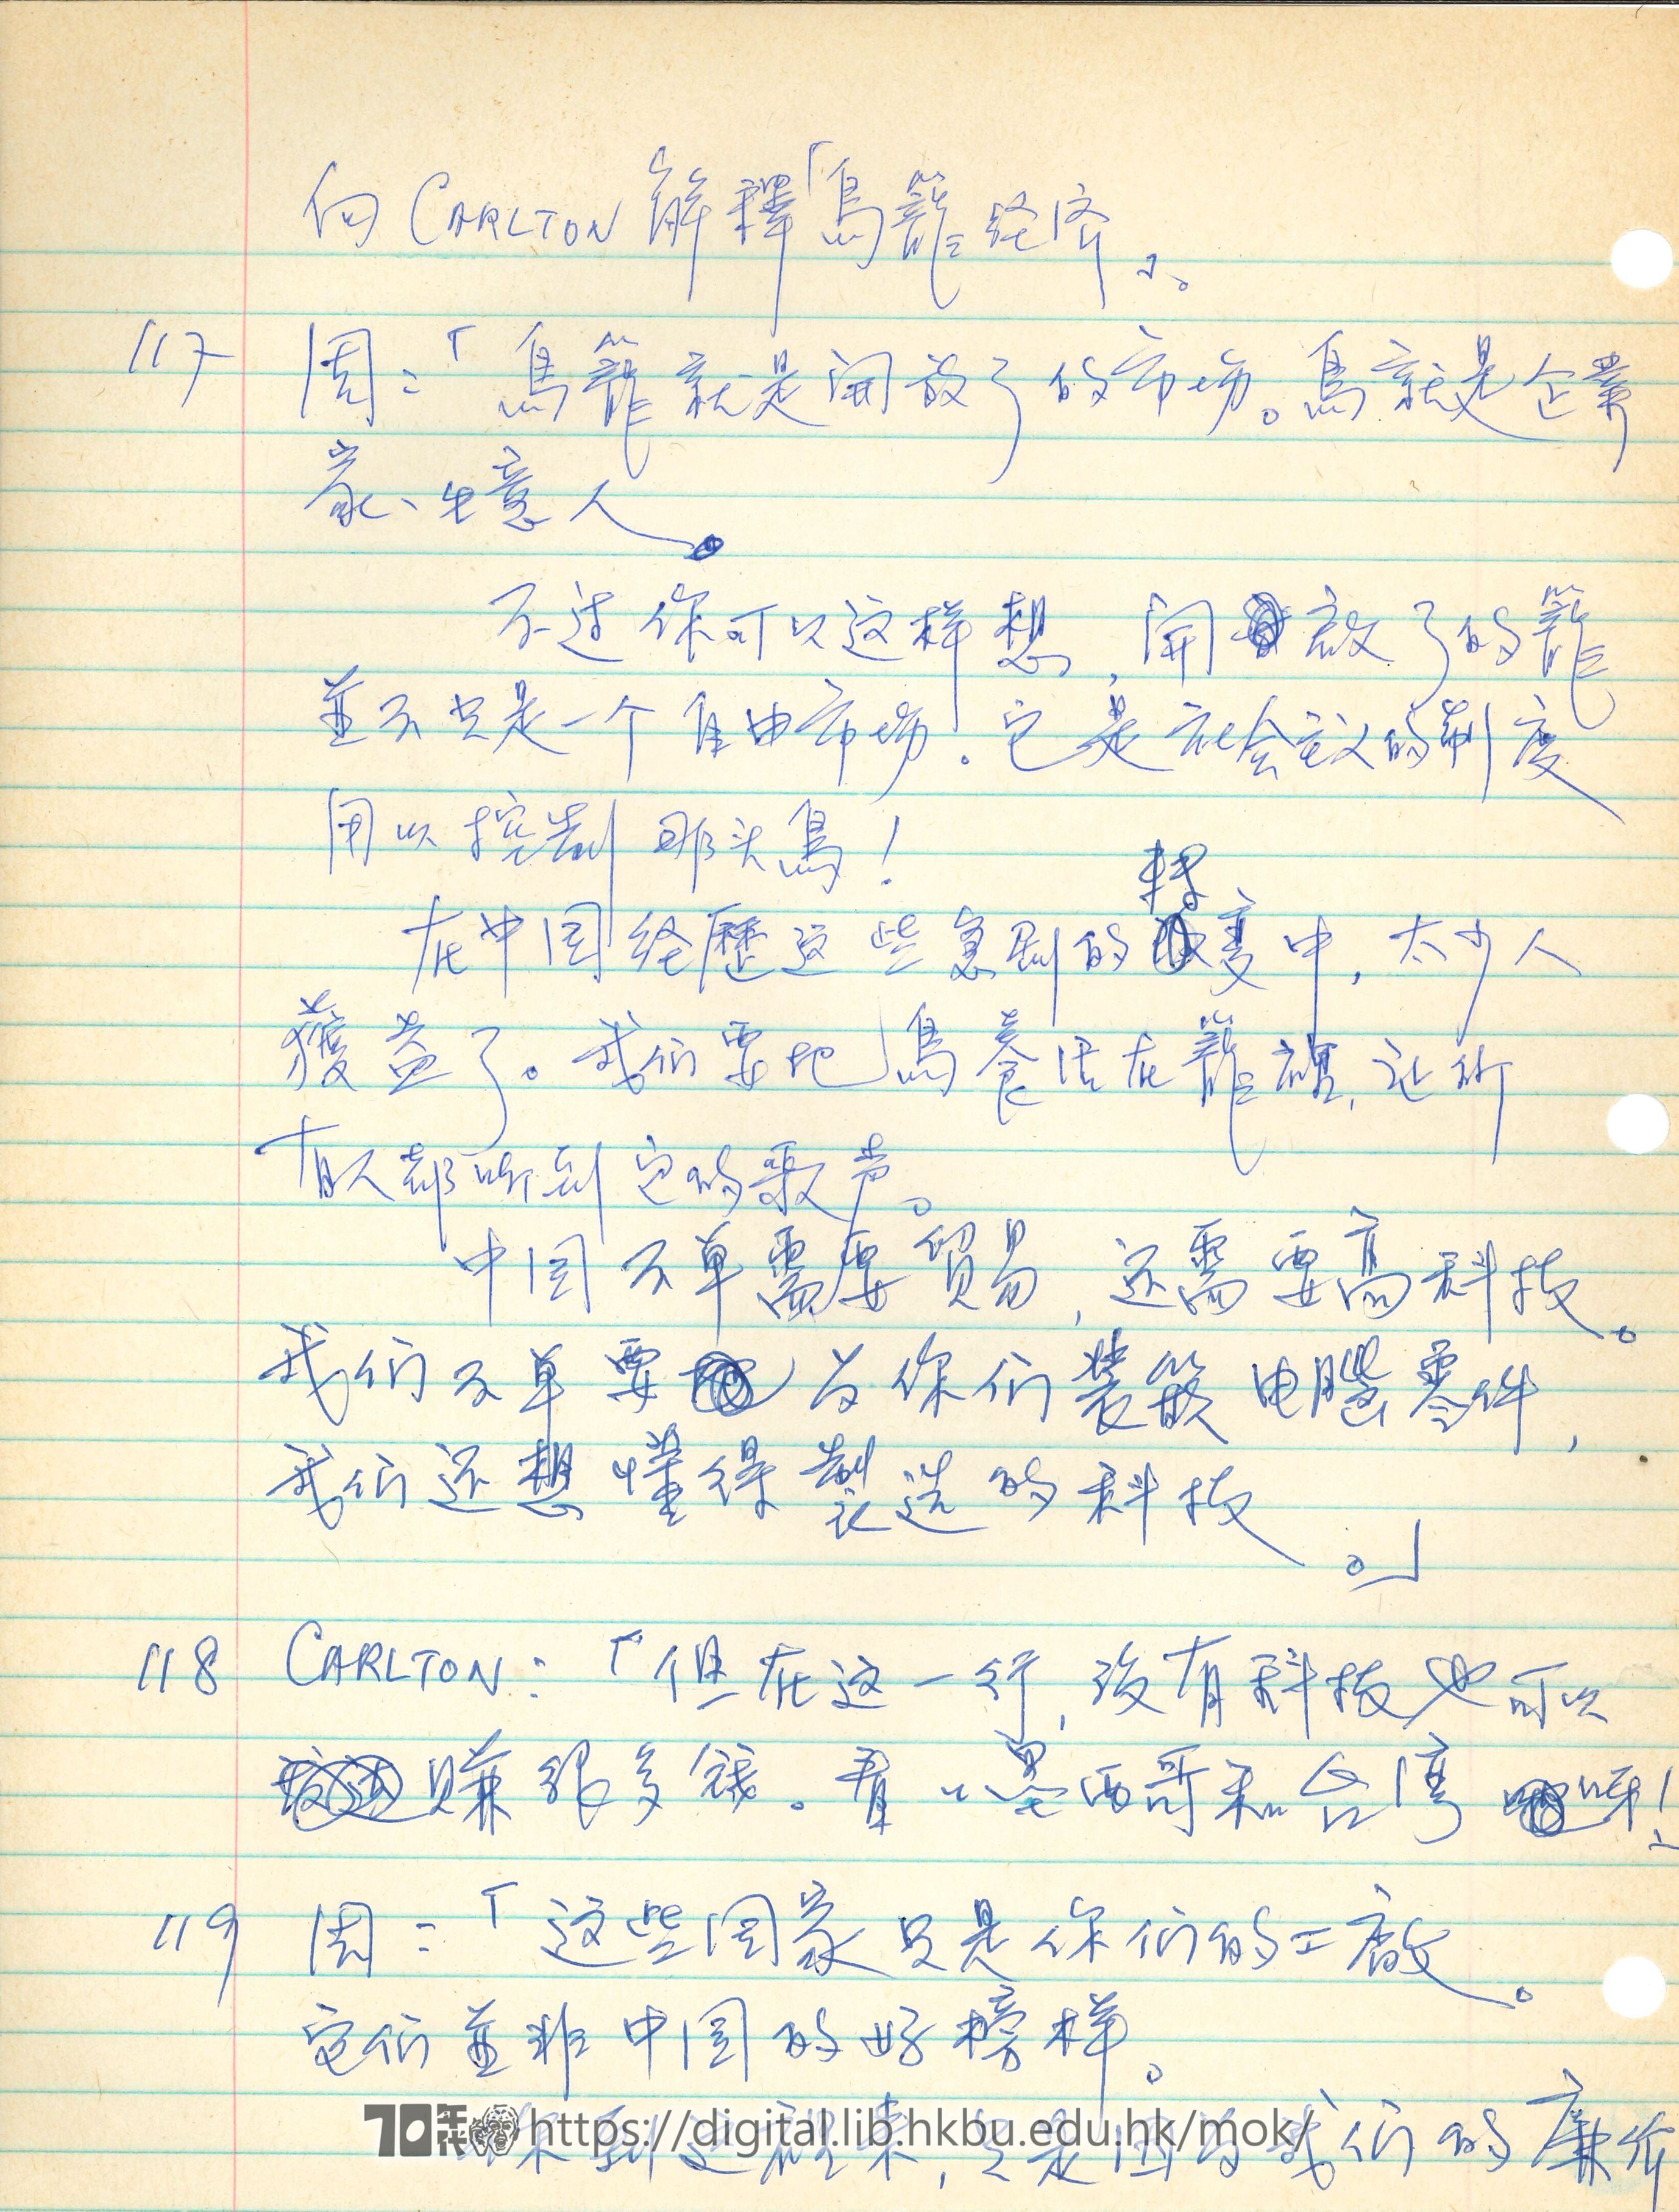 向 CARLTON 解釋「鳥籠经济」。
117 周：「鳥籠就是開放了的市场。鳥就是企業
家、生意人。
不过你可以这样想，開放了的籠
並不只是一个自由市场。它是社会主义的制度
用以控制那头鳥！
在中国经歷这些急剧的轉变中，太少人
獲益了。我们要把鳥養活在籠裡，让所
有人都听到它的歌声。
中国不单需要貿易，还需要高科技。
我们不单要为你们装嵌电腦零件，
我们还想懂得製造的科技。」
118 CARLTON：「但在这一行，没有科技也可以
赚很多錢。看看墨西哥和台湾呀！」
119 周：「这些国家只是你们的工廠。
它们並非中国的好榜样。
你到这裡来，只是因为我们的廉价
70年代 https://digital.lib.hkbu.edu.hk/mok/